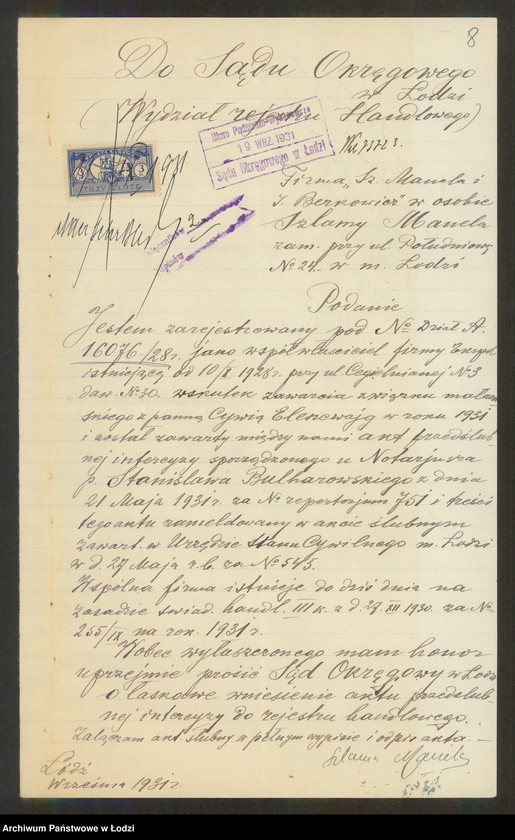 8
Do Sądu Okręgowego
w Łodzi
(Wydział rejestru Handlowego)
Biuro Podawczo
19 WRZ. 1931
Sądu Okręgowego w Łodzi
TRZY ZŁOTE
Firma „Sz. Manela i
J. Berkowicz" w osobie
Szlamy Manela
zam. przy ul. Południowej
№ 24 w m. Łodzi
Podanie
Jestem zarejestrowany pod № Dział A.
16076/28 r. jako współwłaściciel firmy
istniejącej od 10/X 1928 r. przy ul. Cegielnianej № 3
daw. № 30. wskutek zawarcia związku małżeń
skiego z panną Cywią w roku 1931
i został zawarty między nami akt przedślub-
nej intercyzy sporządzonego u Notarjusza
p. Stanisława Bulharowskiego z dnia
21 Maja 1931 r. za № repertorjum 751 i treści
tego aktu zameldowany w akcie ślubnym
zawart. w Urzędzie Stanu Cywilnego m. Łodzi
w d. 27 Maja r. b. za № 545.
Wspólna firma istnieje do dziś dnia na
zasadzie świad. handl. III k. z d. XII 1930. za №
255/IX na rok 1931 r.
Wobec wyłuszczonego mam honor
uprzejmie prosić Sąd Okręgowy w Łodzi
o łaskawe wniesienie aktu przedślub-
nej intercyzy do rejestru handlowego.
Załączam akt ślubny w pełnym wypisie i odpis aktu. —
Szlama Manela
Łódź
Września 1931 r.
Archiwum Państwowe w Łodzi